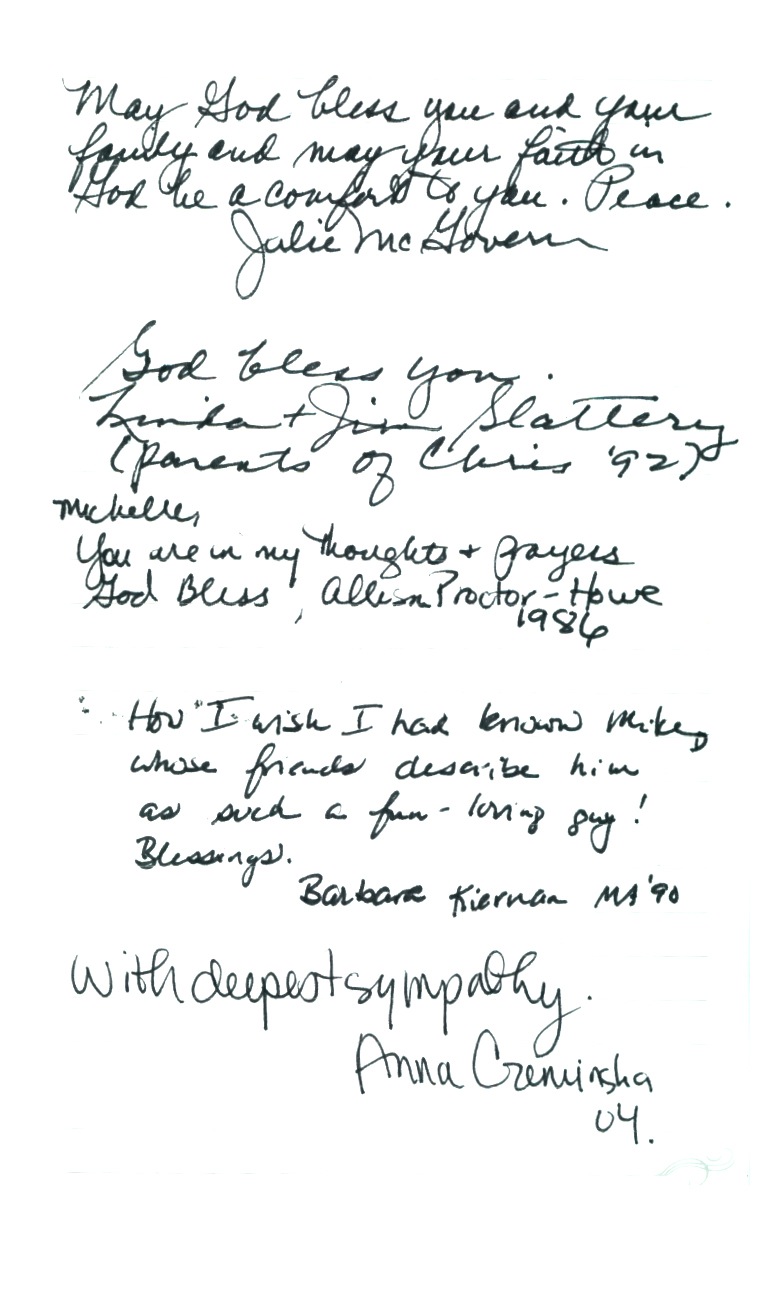 May God bless you and your
family and may your faith in
God be a comfort to you. Peace.
Julie McGovern
God bless you.
Linda + Jim Slattery
(parents of Chris '92)
Michelle,
You are in my thoughts + prayers
God Bless, Allison Proctor-Howe
1986
How I wish I had known Mike,
whose friends describe him
as such a fun-loving guy!
Blessings.
Barbara Kiernan MA '90
With deepest sympathy.
Anna
04.